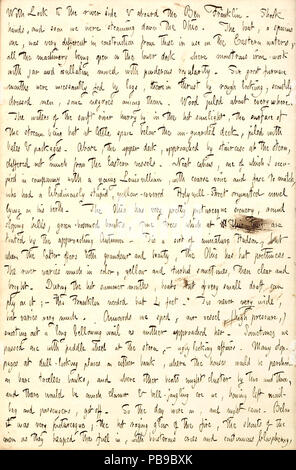 With Lock to the river side & aboard the Ben Franklin. Shook
hands, and soon we were steaming down the Ohio. The boat, a spacious
one, was very different in construction from those in use in the Eastern waters,
all the machinery being open on the lower deck, where monstrous iron-work
with jar and oscillation moved with ponderous regularity. Six great furnace
mouths were incessantly fed by logs, thereto thrust by rough looking, scantily
dressed men, some negroes among them. Wood piled about every where.
The waters of the swift river hurry by in the hot sunlight, the surface of
the stream being but at little space below the un-guarded deck, piled with
bales & packages. Above, the upper deck, approached by staircase at the stern,
differed not much from the Eastern vessels. Neat cabins, one of which I occu-
pied in company with a young Louisvillian with coarse voice and face to match
who had a libidinously stupid, yellow-covered Holywell Street originated novel
lying on his berth. The Ohio has very pretty picturesque scenery, around
sloping hills, green-browed banks, fine trees which at
tinted by the approaching Autumn. Tis a sort of miniature Hudson, but
when the latter fires with grandeur and beauty, the Ohio has but prettiness.
The river varies much in color, yellow and turbid sometimes, then clear and
bright. During the hot summer months, boats of very small draft, com-
ply on it; the Franklin needed but 4 feet. Tis never very wide,
but varies very much. Onwards we sped, our vessel (high pressure,)
snorting out a long bellowing wail as another approached her. Sometimes we
passed one with paddle wheel at the stern, ugly looking affairs. Many stop-
pages at dull-looking places on either bank, where the houses would be perched
on bare treeless banks, and where three boats might cluster by the mud shore,
and there would be much clamor & bell-jangling ere we, having left mail-
bag and passengers, got off. So the day wore on, and night came. Below
it was very picturesque; the hot raging glow of the fires, the shouts of the
men as they heaped the fuel in, with boisterous cries and continuous blasphemy,
alamy
PB9BXK